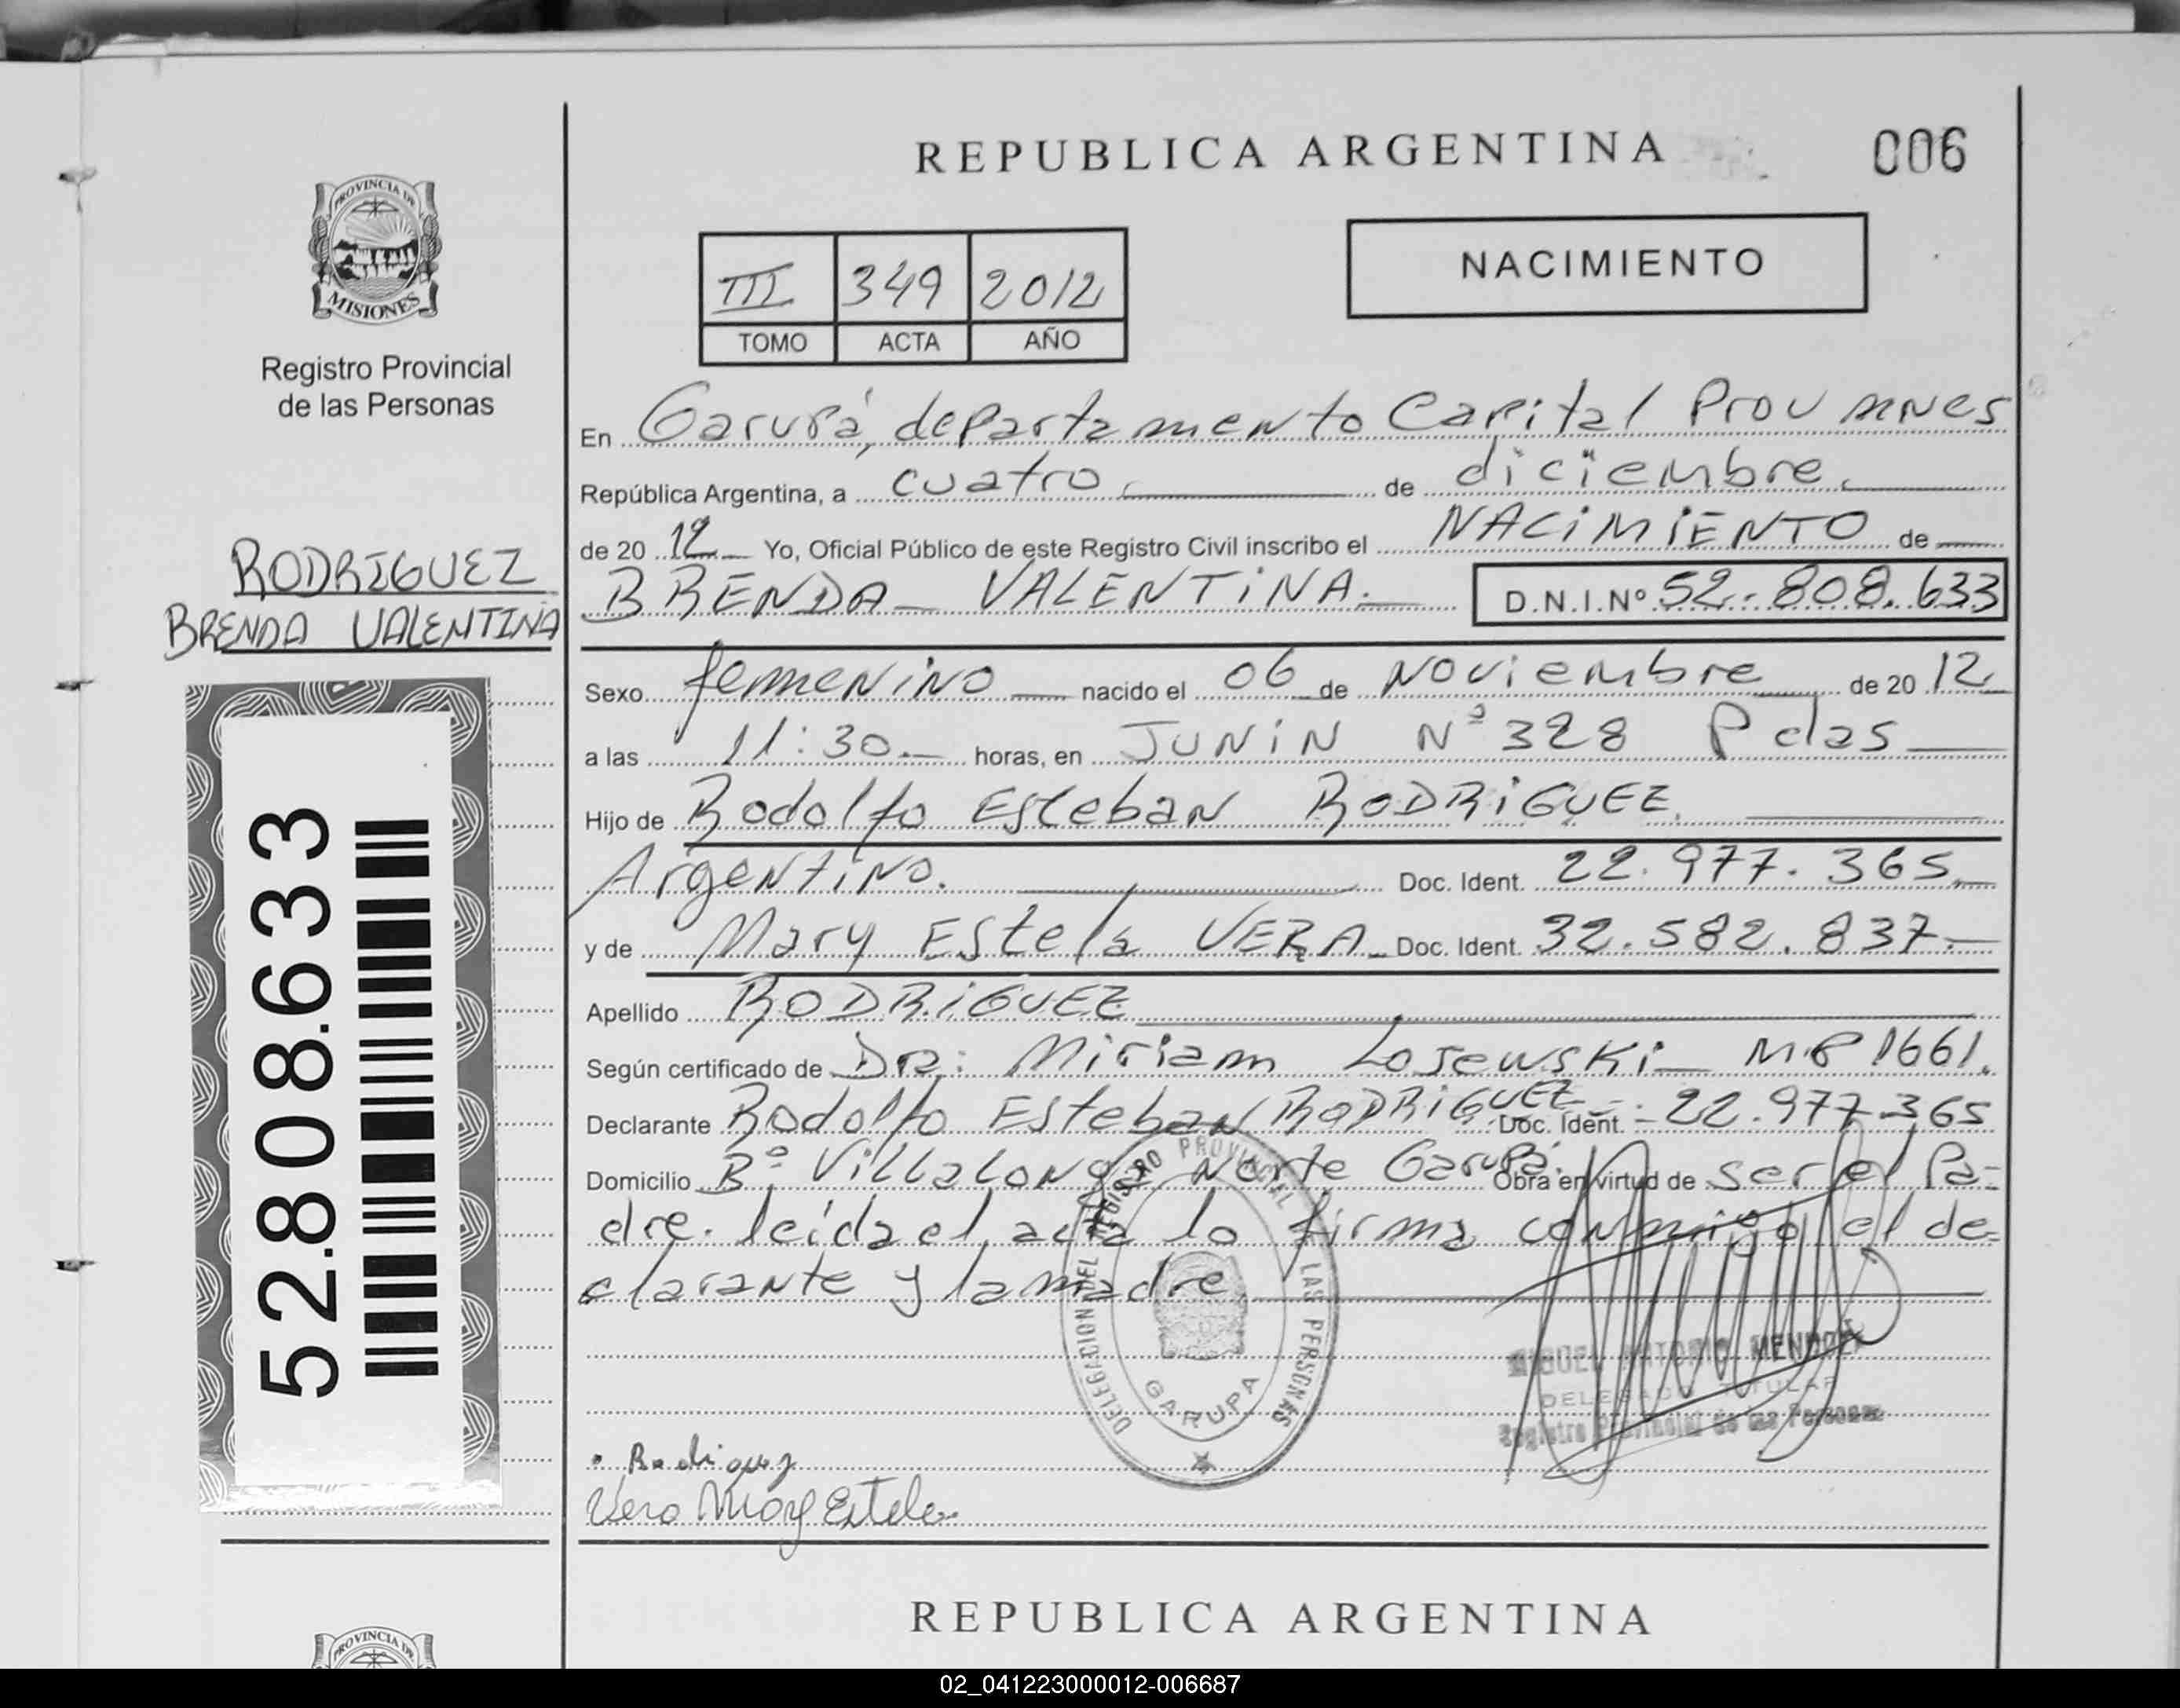 REPUBLICA ARGENTINA
006
PROVINCIA DE
MISIONES
Registro Provincial
de las Personas
NACIMIENTO
III 349 2012
TOMO ACTA AÑO
En Garupá, departamento Capital Prov
República Argentina, a cuatro de diciembre
de 20 12 Yo, Oficial Público de este Registro Civil inscribo el NACIMIENTO de
RODRIGUEZ
BRENDA VALENTINA
BRENDA VALENTINA. D.N.I.Nº 52.808.633
Sexo femenino nacido el 06 de Noviembre de 20 12
a las 11:30 horas, en JUNIN Nº 328 Pdas
Hijo de Rodolfo Esteban RODRIGUEZ.
Argentino. Doc. Ident. 22.977.365
y de Mary Estela VERA Doc. Ident. 32.582.837
Apellido RODRIGUEZ
Según certificado de Dra: Miriam Losewski MP 1661.
Declarante Rodolfo Esteban RODRIGUEZ Doc. Ident. 22.977.365
Domicilio Bº Villalonga Norte Garupá. Obra en virtud de ser el Pa-
dre. leida el acta lo firma conmigo el de-
clarante y la madre.
52.808.633
DELEGACION DEL REGISTRO PROVINCIAL LAS PERSONAS
GARUPA
MIGUEL ANTONIO MENDOZA
DELEGADO TITULAR
Registro Provincial de las Personas
Rodriguez
Vera Mary Estela
REPUBLICA ARGENTINA
PROVINCIA DE
02_041223000012-006687